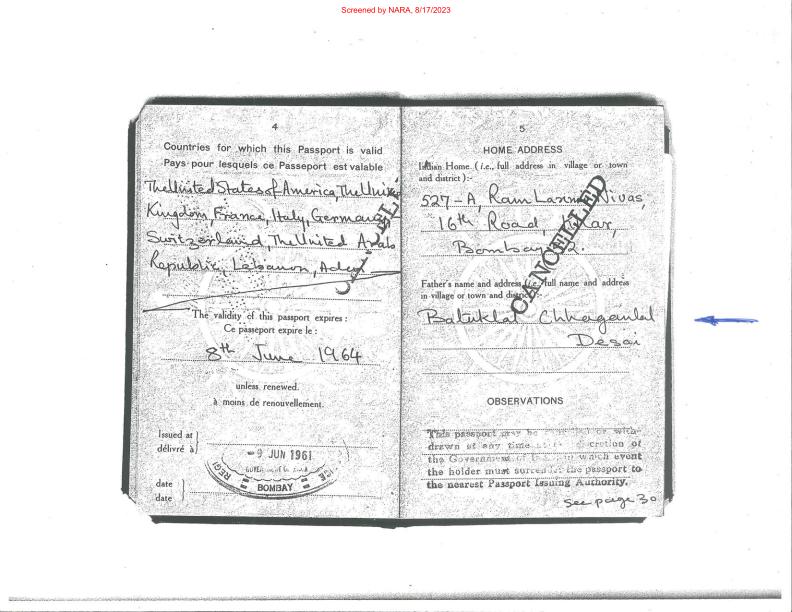 Screened by NARA, 8/17/2023
4
Countries for which this Passport is valid
Pays pour lesquels ce Passeport est valable
The United States of America, The United
Kingdom, France, Italy, Germany,
Switzerland, The United Arab
Republic, Lebanon, Aden
The validity of this passport expires :
Ce passeport expire le :
8th June 1964
unless renewed.
à moins de renouvellement.
Issued at
délivré à
-9 JUN 1961
BOMBAY
date
date
5
HOME ADDRESS
Indian Home (i.e., full address in village or town
and district):-
527-A, Ram Laxmi Nivas,
16th Road, Khar,
Bombay
CANCELLED
Father's name and address (i.e. full name and address
in village or town and district
Batuklal Chhaganlal
Desai
OBSERVATIONS
This passport may be or with-
drawn at any time discretion of
the Government of in which event
the holder must surrender the passport to
the nearest Passport Issuing Authority.
See page 30